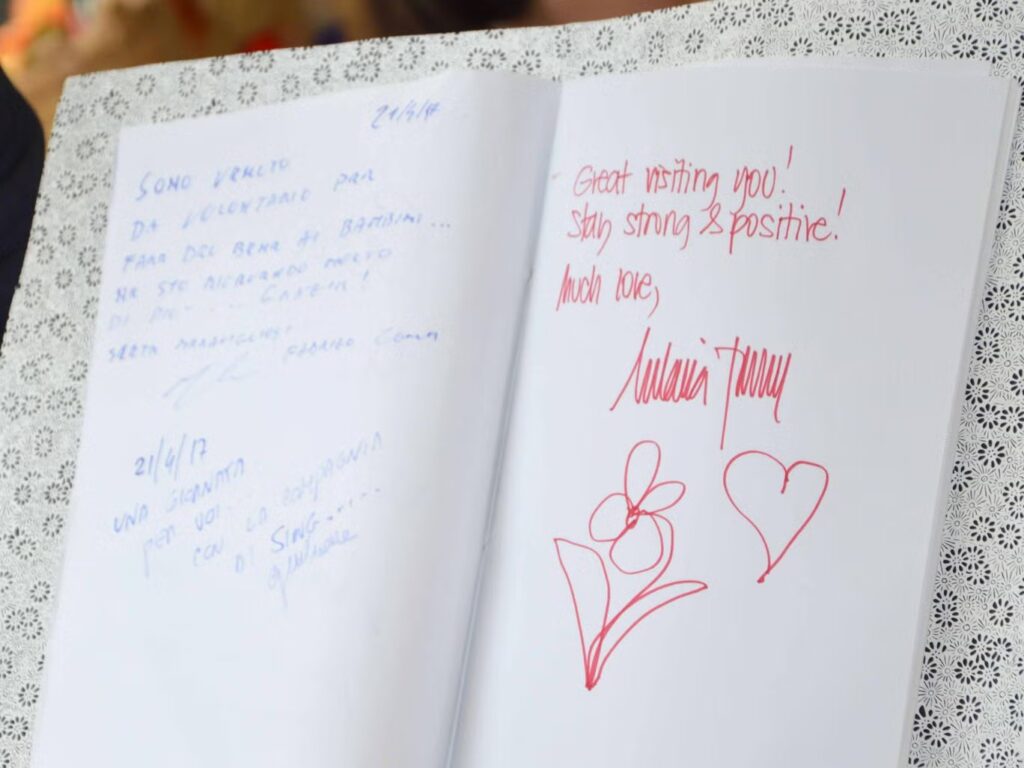 21/4/17
SONO VENUTO
DA VOLONTARIO PER
FARE DEL BENE AI BAMBINI...
MA STO RICEVENDO MOLTO
DI PIU'
FABRIZIO
21/4/17
UNA GIORNATA
PER VOI
CON LA COMPAGNIA
DI SING.....
Great visiting you!
Stay strong & positive!
Much love,
Melania Trump